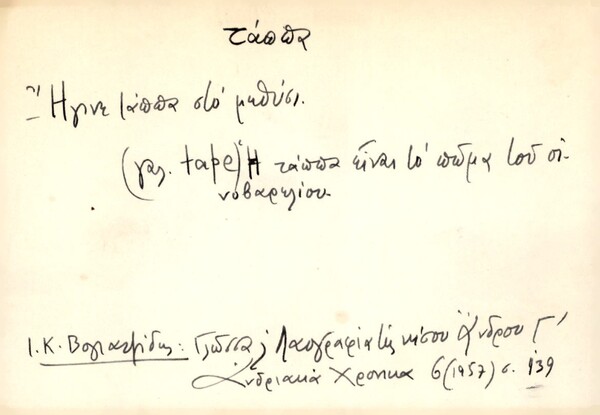 τάππα
Ἤγινε τάππα στό μεθύσι.
(γαλ. tape) Ἡ τάππα εἶναι τό πῶμα τοῦ οἰ-
νοβαρελίου.
Ι. Κ. Βογιατζίδης: Γλῶσσα, Λαογραφία τῆς νήσου Ἄνδρου Γ'
Ἀνδριακά Χρονικα 6 (1957) σ. 139